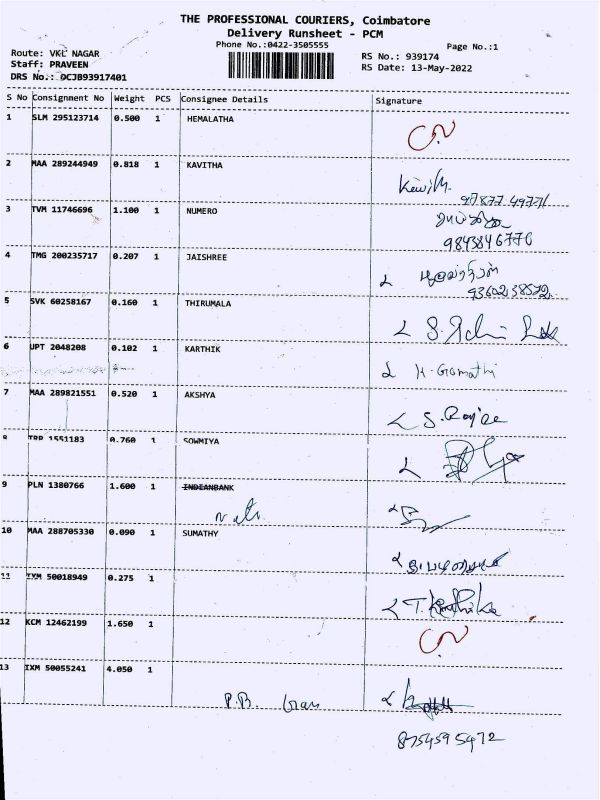 THE PROFESSIONAL COURIERS, Coimbatore
Delivery Runsheet - PCM
Phone No.:0422-3505555
Page No.:1
Route: VKL NAGAR
Staff: PRAVEEN
DRS No.: OCJB93917401
RS No.: 939174
RS Date: 13-May-2022
S No Consignment No Weight PCS Consignee Details Signature
1 SLM 295123714 0.500 1 HEMALATHA
2 MAA 289244949 0.818 1 KAVITHA
3 TVM 11746696 1.100 1 NUMERO
9843846770
4 TMG 200235717 0.207 1 JAISHREE
5 SVK 60258167 0.160 1 THIRUMALA
6 UPT 2048208 0.102 1 KARTHIK
K. Gomathi
7 MAA 289821551 0.520 1 AKSHYA
8 TRP 1551183 0.760 1 SOWMIYA
9 PLN 1380766 1.600 1 INDIANBANK
10 MAA 288705330 0.090 1 SUMATHY
11 IXM 50018949 0.275 1
12 KCM 12462199 1.650 1
13 IXM 50055241 4.050 1
P.B.
8754595472